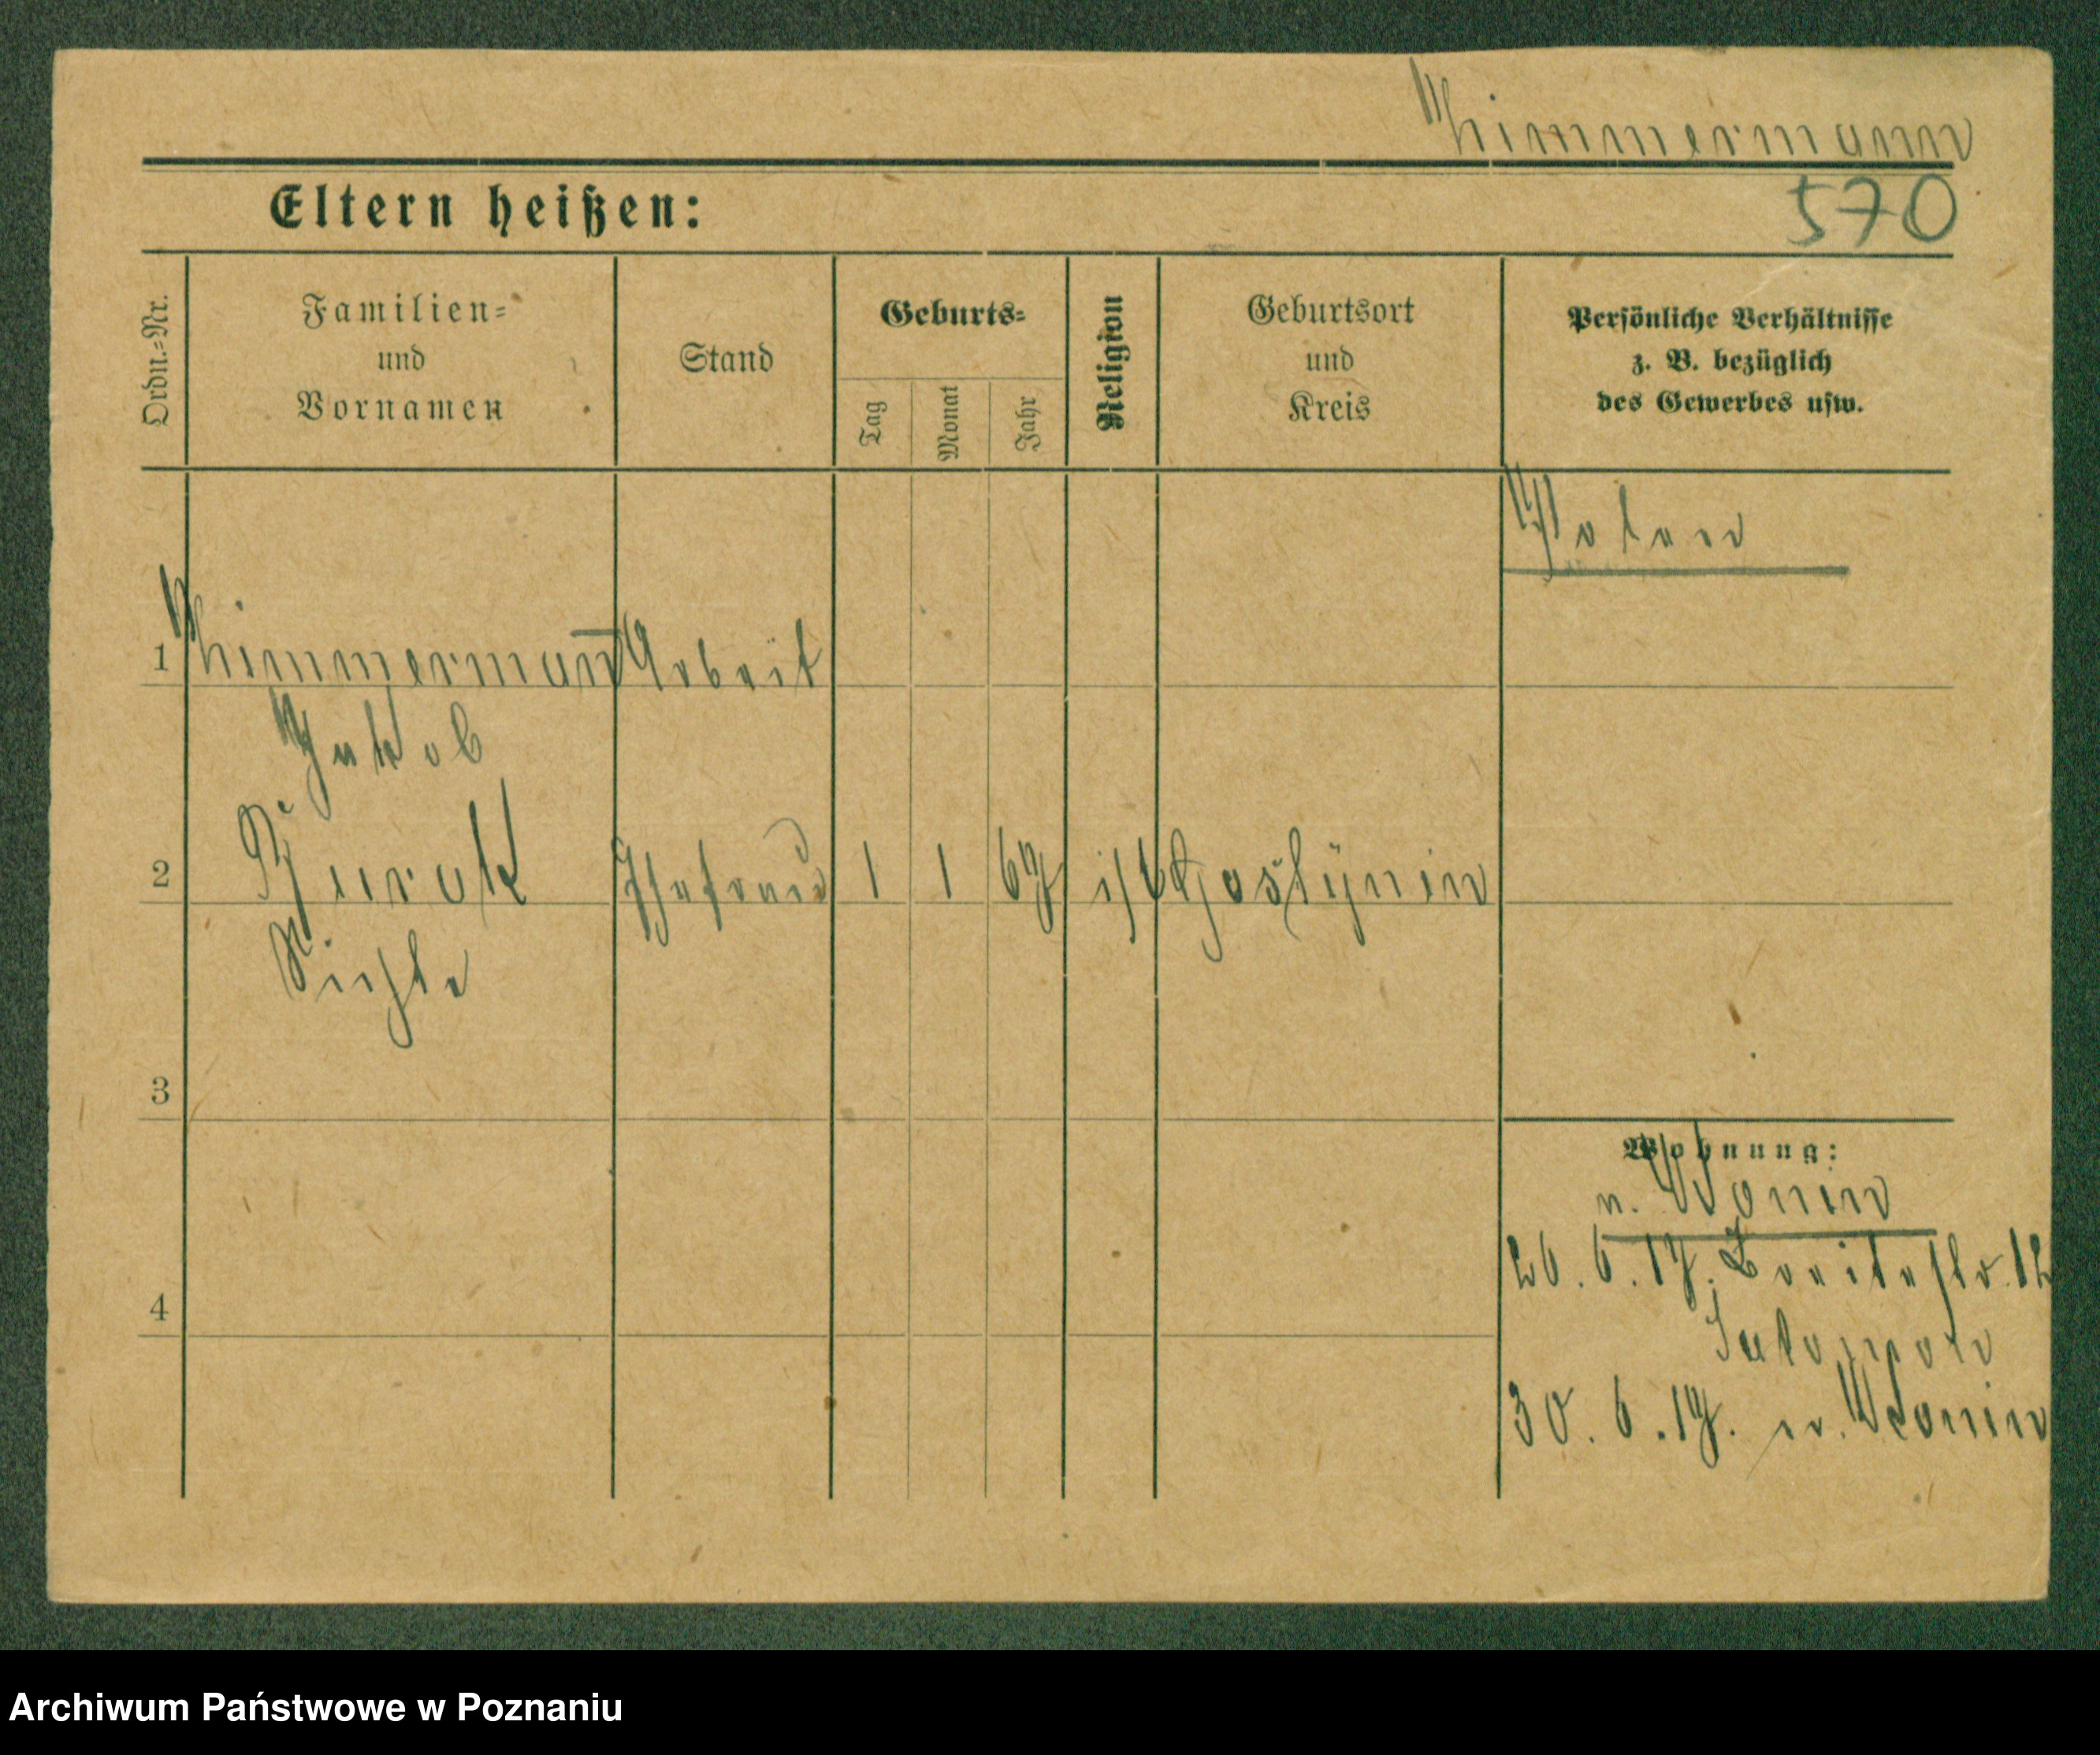 Zimmermann
570
Eltern heißen:
Ordn.=Nr.
Familien=
und
Vornamen
Stand
Geburts=
Tag
Monat
Jahr
Religion
Geburtsort
und
Kreis
Persönliche Verhältnisse
z. B. bezüglich
des Gewerbes usw.
Polen
1 Zimmermann Arbeit
Jakob
2 Ehefrau 1 1 67 isr Gostynin
3
4
Wohnung:
n. Konin
26.6.17. Breitestr. 12
Salomon
30.6.17. n. Konin
Archiwum Państwowe w Poznaniu